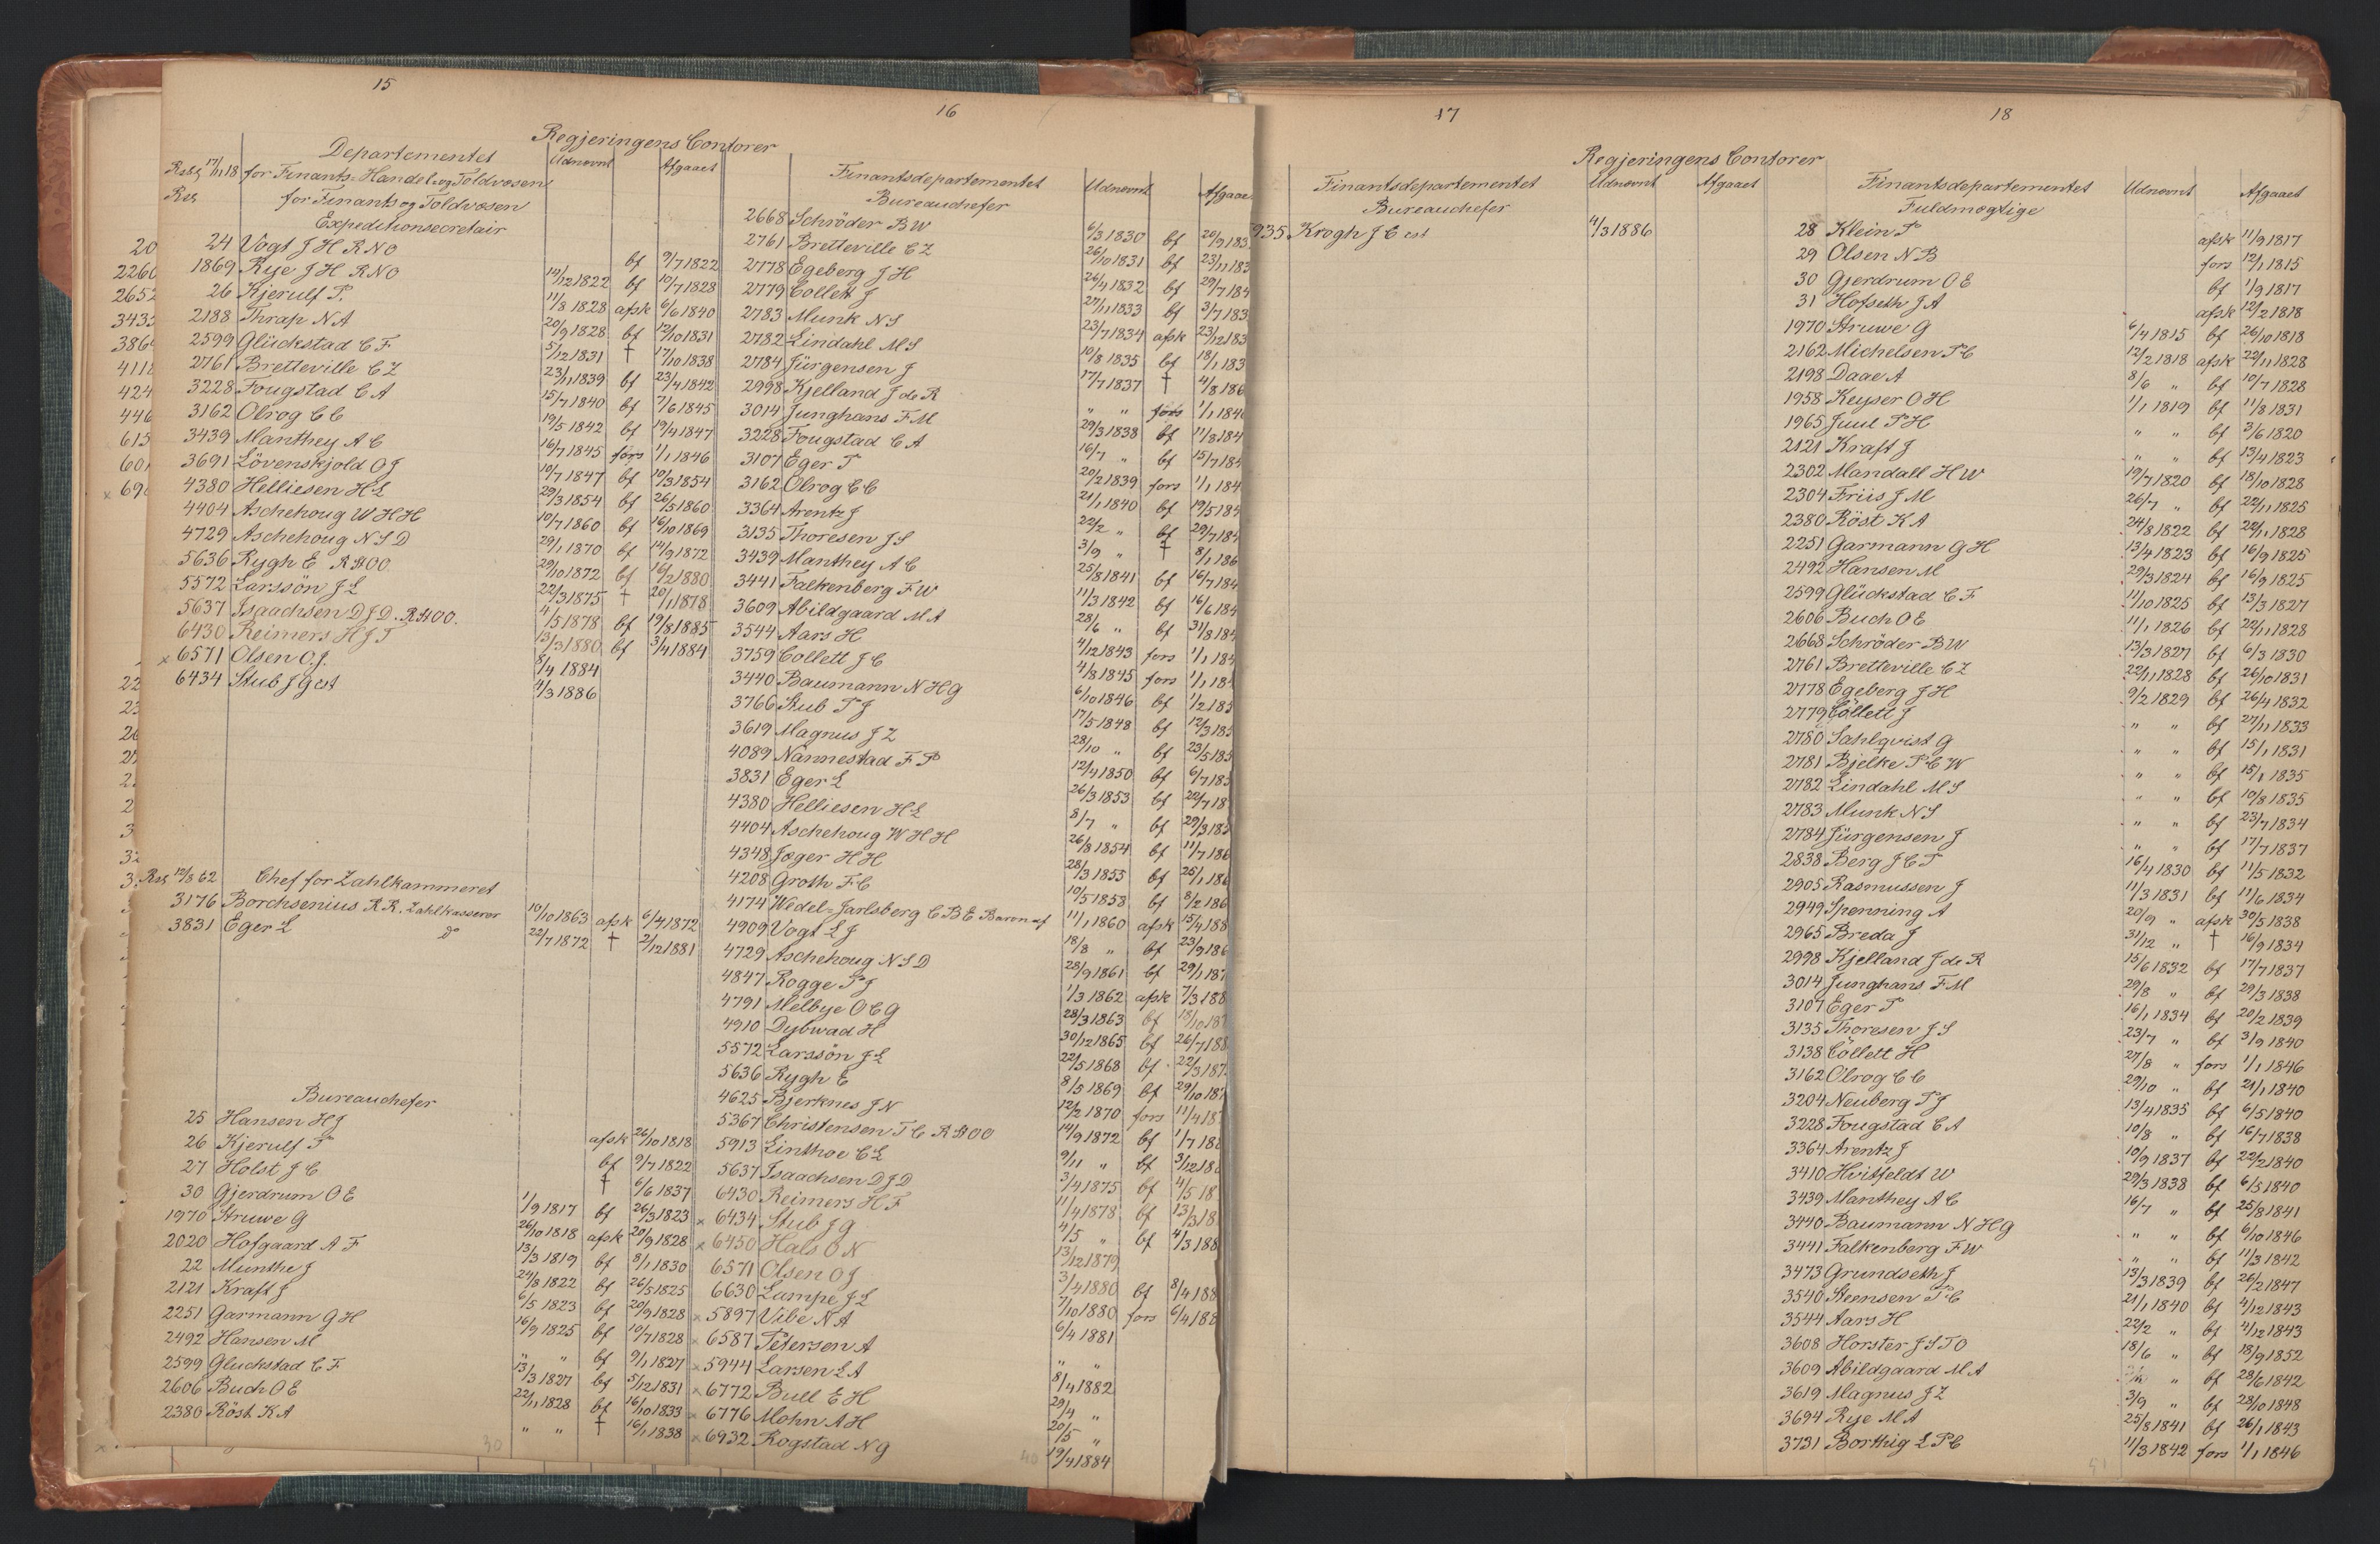 15
Regjeringens Contorer
Departementet Udnævnt Afgaaet
Res 17/11 18 for Finants- Handel og Toldvæsen
Res for Finants og Toldvæsen
Expeditionsecretair
24 Vogt J H R NO bf 9/7 1822
1869 Rye J H R NO 14/12 1822 bf 10/7 1828
26 Kjerulf P. 11/8 1828 afsk 6/6 1840
2188 Thrap N A 20/9 1828 bf 12/10 1831
2599 Glückstad C F 5/12 1831 † 17/10 1838
2761 Bretteville C Z 23/11 1839 bf 23/4 1842
3228 Fougstad C A 15/7 1840 bf 7/6 1845
3162 Olrog C C 19/5 1842 bf 19/4 1847
3439 Manthey A C 16/7 1845 fors 1/1 1846
3691 Lövenskjold O J 10/7 1847 bf 10/3 1854
4380 Helliesen H L 29/3 1854 bf 26/5 1860
4404 Aschehoug W H H 10/7 1860 bf 16/10 1869
4729 Aschehoug N S D 29/1 1870 bf 14/9 1872
5636 Rygh E R StOO 29/10 1872 bf 16/2 1880
5572 Larssön J L 22/3 1875 † 20/1 1878
5637 Isaachsen D J D. R StOO. 4/5 1878 bf 19/8 1885
6430 Reimers H J F 13/3 1880 bf 3/4 1884
x 6571 Olsen O J. 8/4 1884
6434 Stub J G cst 4/3 1886
Res 19/8 62 Chef for Zahlkammeret
3176 Borchsenius R R. Zahlkasserer 19/10 1863 afsk 6/4 1872
3831 Eger L do 22/7 1872 † 2/12 1881
Bureauchefer
25 Hansen H J afsk 26/10 1818
26 Kjerulf P bf 9/7 1822
27 Holst J C † 6/6 1837
30 Gjerdrum O E 1/9 1817 bf 26/3 1823
1970 Struwe G 26/10 1818 afsk 20/9 1828
2020 Hofgaard A F 13/3 1819 bf 8/1 1830
22 Munthe J 24/8 1822 bf 26/5 1825
2121 Kraft J 6/5 1823 bf 20/9 1828
2251 Garmann G H 16/9 1825 bf 10/7 1828
2492 Hansen M " " bf 9/1 1827
2599 Gluckstad C F 13/3 1827 bf 5/12 1831
2606 Buch O E 22/11 1828 bf 16/10 1833
2380 Röst K A " " † 16/1 1838
30
16
Finantsdepartementet Udnævnt Afgaae
Bureauchefer
2668 Schröder B W 6/3 1830 bf 20/9 183
2761 Bretteville C Z 26/10 1831 bf 23/11 183
2778 Egeberg J H 26/4 1832 bf 29/7 184
2779 Collett J 27/11 1833 bf 3/7 183
2783 Munk N S 23/7 1834 afsk 23/12 183
2782 Lindahl M S 10/8 1835 bf 18/1 183
2784 Jürgensen J 17/7 1837 † 4/8 186
2998 Kjelland J de R " " fors 1/1 184
3014 Junghans F M 29/3 1838 bf 11/8 184
3228 Fougstad C A 16/7 " bf 15/7 184
3107 Eger P 20/2 1839 fors 1/1 184
3162 Olrog C C 21/1 1840 bf 19/5 184
3364 Arentz J 22/2 " bf 29/7 184
3135 Thoresen J S 3/9 " † 8/1 186
3439 Manthey A C 25/8 1841 bf 16/7 184
3441 Falkenberg F W 11/3 1842 bf 16/6 184
3609 Abildgaard M A 28/6 " bf 31/8 184
3544 Aars H 4/12 1843 fors 1/1 184
3759 Collett J C 4/8 1845 fors 1/1 18
3440 Baumann N H G 6/10 1846 bf 1/2 185
3766 Stub P J 17/5 1848 bf 12/3 185
3619 Magnus J Z 28/10 " bf 23/5 185
4089 Nannestad F P 12/4 1850 bf 6/7 185
3831 Eger L 26/3 1853 bf 22/7 18
4380 Helliesen H L 8/7 " bf 29/3 185
4404 Aschehoug W H H 26/8 1854 bf 11/7 186
4348 Jæger H H 28/3 1855 bf 25/1 186
4208 Groth F C 10/5 1858 bf 8/2 186
4174 Wedel-Jarlsberg C B E Baron af 11/1 1860 afsk 15/4 188
4909 Vogt L J 18/8 " bf 23/9 186
4729 Aschehoug N S D 28/9 1861 bf 29/1 187
4847 Rogge P J 1/3 1862 afsk 7/3 188
4791 Melbye O C G 28/3 1863 bf 18/10 187
4910 Dybwad H 30/12 1865 bf 26/7 188
5572 Larssön J L 22/5 1868 bf 22/3 187
5636 Rygh E 8/5 1869 bf 29/10 187
4625 Bjerknes J N 12/2 1870 fors 11/4 187
5367 Christensen T C R StOO 14/9 1872 bf 1/7 188
5913 Linthoe C L 9/11 " bf 3/12 18
5637 Isaachsen D J D 3/4 1875 bf 4/5 18
6430 Reimers H F 11/4 1878 bf 13/3 18
x 6434 Stub J G 4/5 " bf 4/3 188
x 6450 Hals O N 13/12 1879
6571 Olsen O J 3/4 1880 bf 8/4 188
6630 Lampe J L 7/10 1880 fors 6/4 188
x 5897 Vibe N A 6/4 1881
x 6587 Petersen A " "
x 5944 Larsen L A 8/4 1882
x 6772 Bull E H 29/4 "
x 6776 Mohn A H 20/5 "
x 6932 Rogstad N G 19/4 1884
40
17
Regjeringens Contorer
Finantsdepartementet Udnævnt Afgaaet
Bureauchefer
935. Krogh J C cst 4/3 1886
18
5
Finantsdepartementet Udnævnt Afgaaet
Fuldmægtige
28 Klein P afsk 11/9 1817
29 Olsen N B fors 12/1 1815
30 Gjerdrum O E bf 1/9 1817
31 Hofseth J A afsk 12/2 1818
1970 Struwe G 6/4 1815 bf 26/10 1818
2162 Michelsen P C 12/2 1818 afsk 22/11 1828
2198 Daae A 8/6 " bf 10/7 1828
1958 Keyser O H 1/1 1819 bf 11/8 1831
1965 Juul P H " " bf 3/6 1820
2121 Kraft J " " bf 13/4 1823
2302 Mandall H W 19/7 1820 bf 18/10 1828
2304 Friis J M 26/7 " bf 22/11 1825
2380 Röst K A 24/8 1822 bf 22/11 1828
2251 Garmann G H 13/4 1823 bf 16/9 1825
2492 Hansen M 29/3 1824 bf 16/9 1825
2599 Glückstad C F 11/10 1825 bf 13/3 1827
2606 Buch O E 11/1 1826 bf 22/11 1828
2668 Schröder B W 13/3 1827 bf 6/3 1830
2761 Bretteville C Z 22/11 1828 bf 26/10 1831
2778 Egeberg J H 9/2 1829 bf 26/4 1832
2779 Collett J " " bf 27/11 1833
2780 Sahlqvist G " " bf 15/1 1831
2781 Bjelke P C W " " bf 15/1 1835
2782 Lindahl M S " " bf 10/8 1835
2783 Munk N S " " bf 23/7 1834
2784 Jürgensen J " " bf 17/7 1837
2838 Berg J C T 16/4 1830 bf 11/5 1832
2905 Rasmussen J 11/3 1831 bf 11/6 1834
2949 Spenning A 20/9 " afsk 30/5 1838
2965 Breda J 31/12 " † 16/9 1834
2998 Kjelland J de R 15/6 1832 bf 17/7 1837
3014 Junghans F M 29/8 " bf 29/3 1838
3107 Eger P 16/1 1834 bf 20/2 1839
3135 Thoresen J S 23/7 " bf 3/9 1840
3138 Collett H 27/8 " fors 1/1 1846
3162 Olrog C C 29/10 " bf 21/1 1840
3204 Neuberg P J 13/4 1835 bf 6/5 1840
3228 Fougstad C A 10/8 " bf 16/7 1838
3364 Arentz J 10/9 1837 bf 22/2 1840
3410 Hvitfeldt W 29/3 1838 bf 6/5 1840
3439 Manthey A C 16/7 " bf 25/8 1841
3440 Baumann N H G " " bf 6/10 1846
3441 Falkenberg F W " " bf 11/3 1842
3473 Grundseth J 13/3 1839 bf 26/2 1847
3540 Steensen P C 21/1 1840 bf 4/12 1843
3544 Aars H 22/2 " bf 4/12 1843
3608 Horster J S T O 18/6 " bf 18/9 1852
3609 Abildgaard M A " bf 28/6 1842
3619 Magnus J Z 3/9 " bf 28/10 1848
3694 Rye M A 25/8 1841 bf 26/1 1843
3731 Borthig L P C 11/3 1842 fors 1/1 1846
51